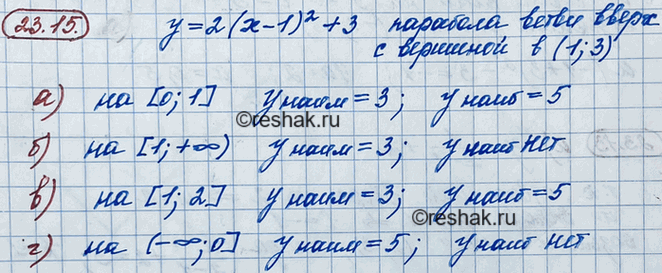 23.15. y = 2(x-1)² + 3 парабола ветви вверх
с вершиной в (1; 3)
а) на [0; 1] y наим = 3; y наиб = 5
©reshak.ru
б) на [1; +∞) y наим = 3; y наиб нет
в) на [1; 2] y наим = 3; y наиб = 5
©reshak.ru
г) на (-∞; 0] y наим = 5; y наиб нет